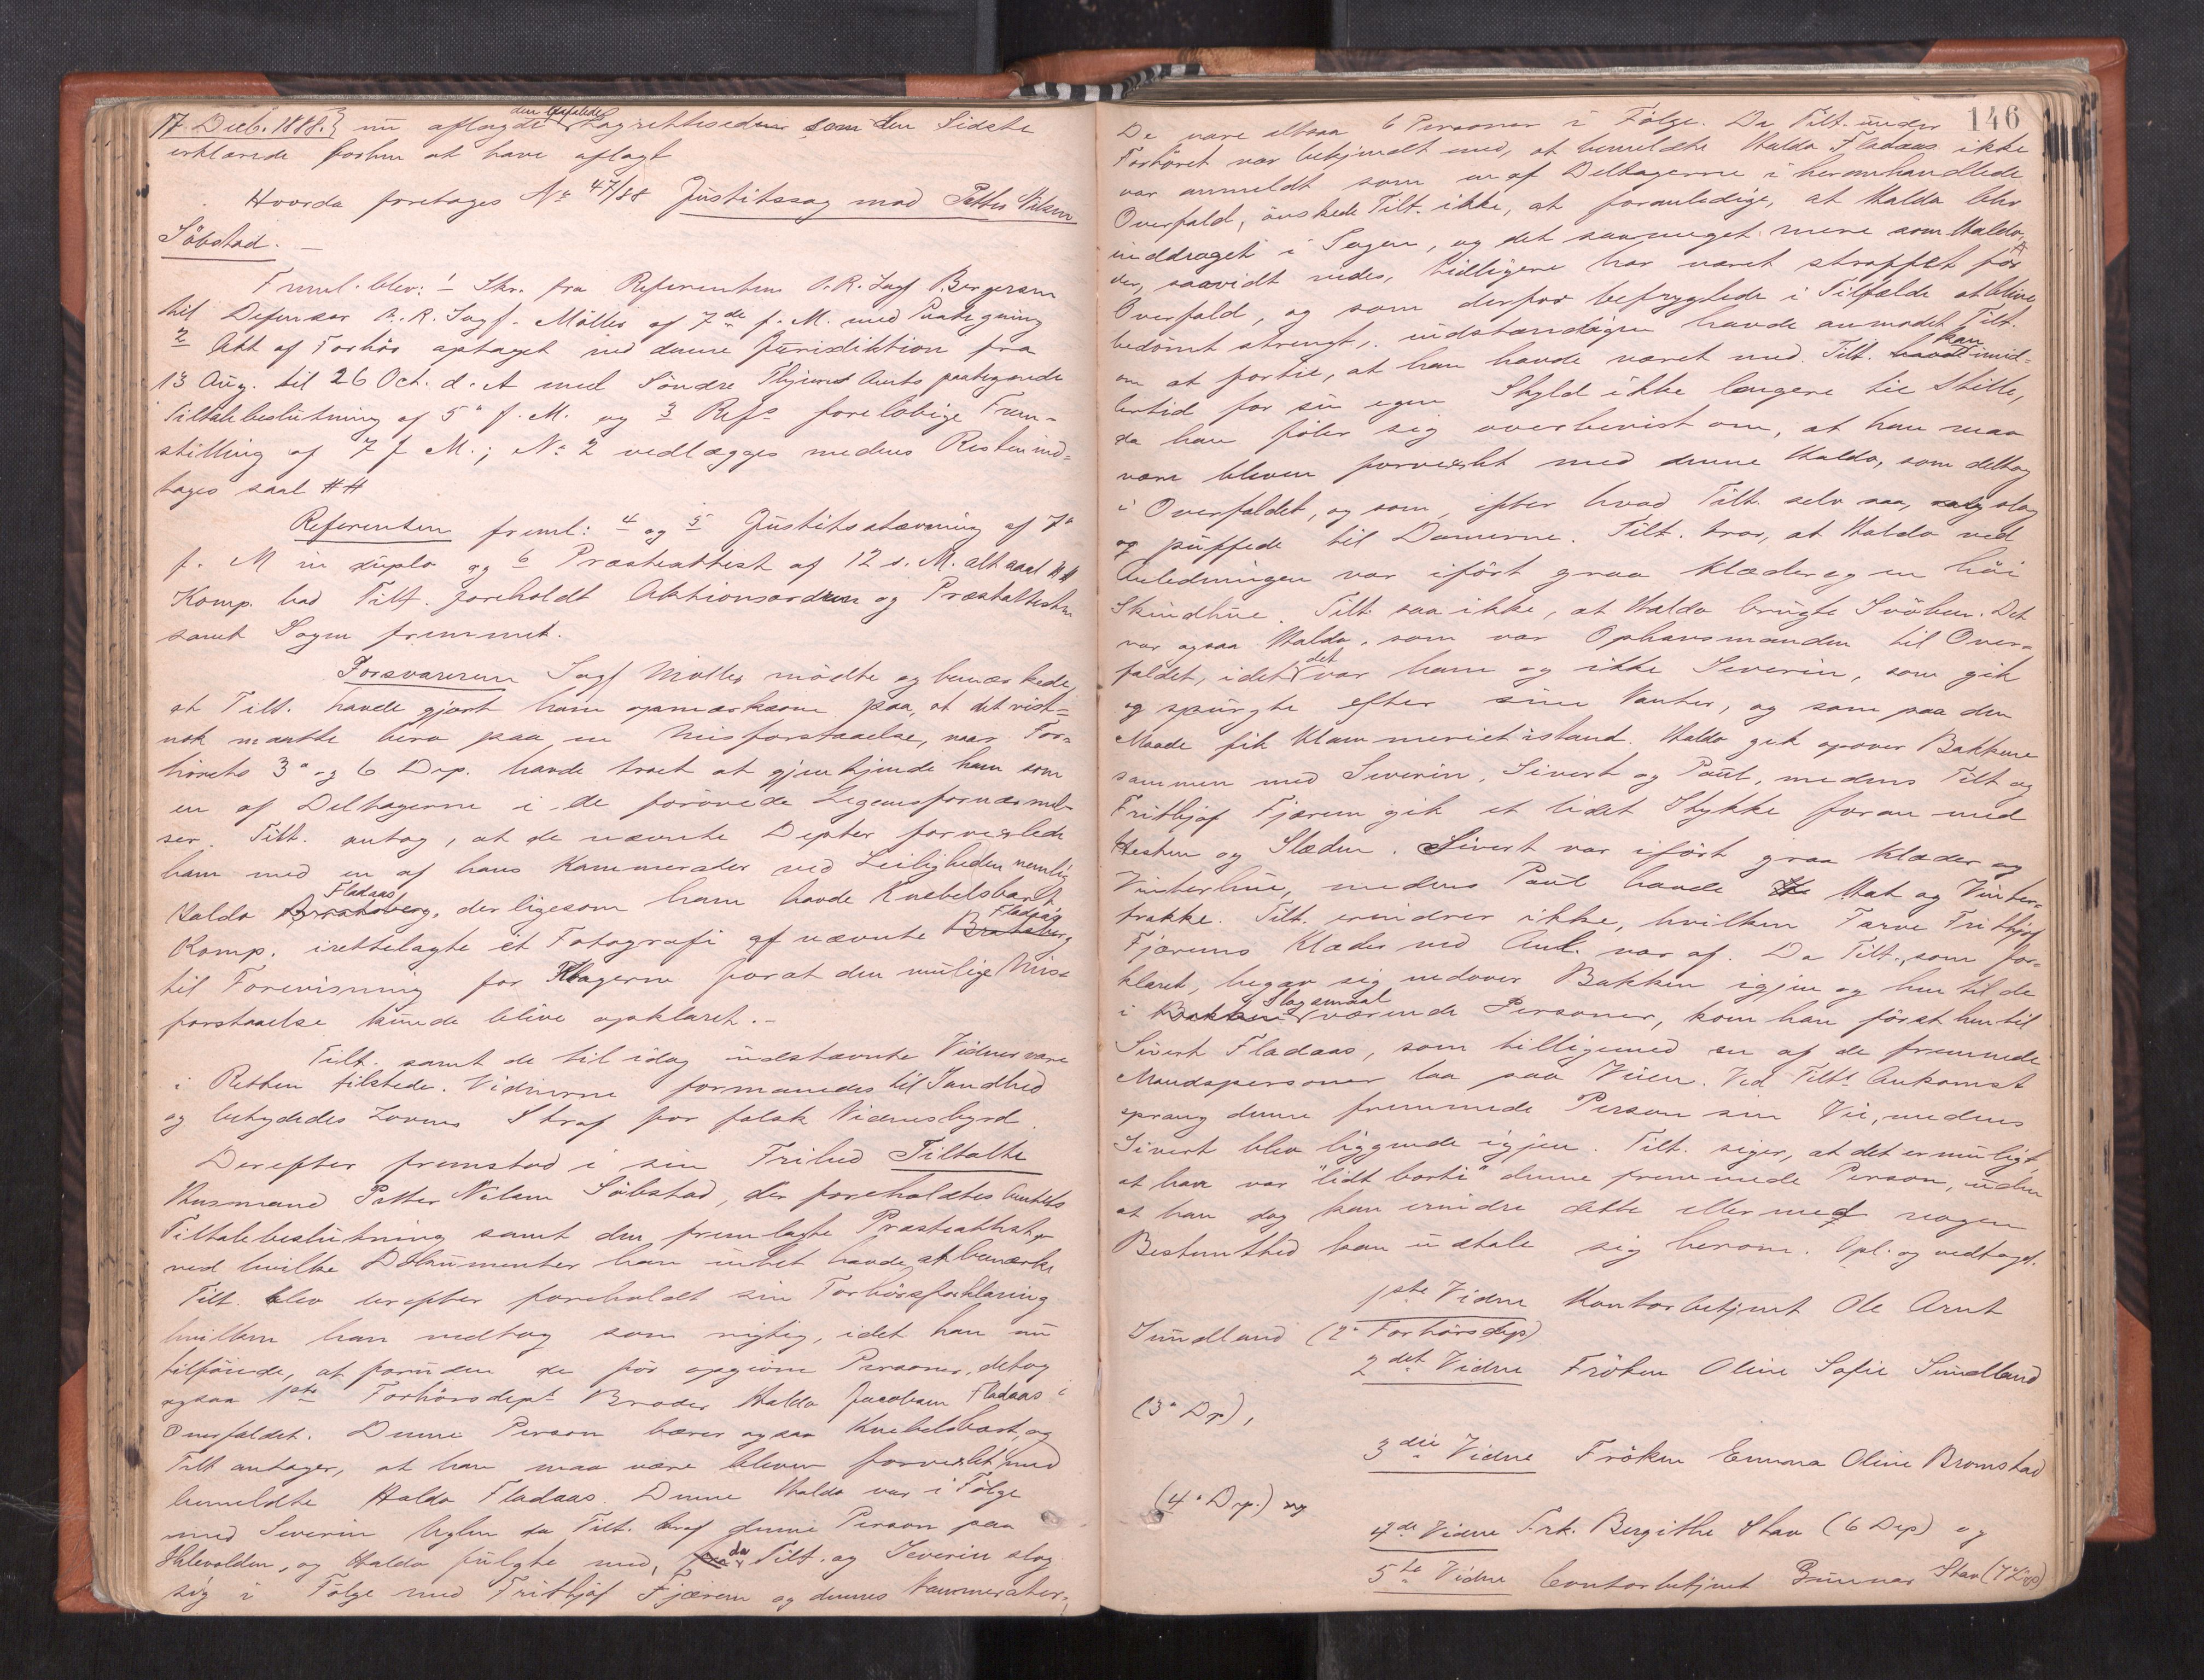 17. Decb. 1888.} nu aflagde den befalede Lagrettesed som den Sidste
erklærede forhen at have aflagt
Hvorda foretages No 47/88 Justitssag mod Petter Nilsen
Söbstad. —
Freml. blev: 1 Skr. fra Referenten O. R. Sagf. Bergersen
til Defensor O. R. Sagf. Möller af 7de f. M. med Paategning
2 Att af Forhör optaget ved denne Jurisdiktion fra
13 Aug. til 26 Oct. d. A med Söndre Thjems Amts paategnede
Tiltalebeslutning af 5' f. M. og 3 Refs forelöbige Frem-
stilling af 7 f M.; No 2 vedlægges medens Resten ind-
tages saal ##
Referenten freml: 4 og 5 Justitsstævning af 7'
f. M in duplo og 6 Præsteattest af 12 s. M. alt saal ##
Komp. bad Tilt. foreholdt Aktionsordren og Præsteattesten
samt Sagen fremmet.
Forsvareren Sagf Möller mödte og bemærkede,
at Tilt. havde gjort ham opmærksom paa, at det vist-
nok maatte bero paa en Misforstaaelse, naar For-
hörets 3' og 6 Dep. havde troet at gjenkjende ham som
en af Deltagerne i de forövede Legemsfornærmel-
ser. Tilt. antog, at de nævnte Depter forvexlede
ham med en af hans Kammerater ved Leiligheden nemlig
Haldo Fladaas, der ligesom ham havde Knebelsbart
Komp. irettelagte et Fotografi af nævnte Fladaas
til Forevisning for Klagerne forat den mulige Mis-
forstaaelse kunde blive opklaret. –
Tilt. samt de til idag indstævnte Vidner vare
i Retten tilstede. Vidnerne formanedes til Sandhed
og betydedes Lovens Straf for falsk Vidnesbyrd.
Derefter fremstod i sin Frihed Tiltalte
Husmand Petter Nilsen Söbstad, der foreholdtes Amtets
Tiltalebeslutning samt den fremlagte Præsteattest
ved hvilke Dokumenter han intet havde at bemærke
Tilt. blev derefter foreholdt sin Forhörsforklaring
hvilken han vedtog som rigtig, idet han nu
tilföiede, at foruden de för opgivne Personer, deltog
ogsaa 1ste Forhörsdepts Broder Haldo Jacobsen Fladaas i
Overfaldet. Denne Person bærer ogsaa Knebelsbart, og
Tilt antager, at han maa være bleven forvexlet med
bemeldte Haldo Fladaas. Denne Haldo var i Fölge
med Severin Uglen da Tilt. traf denne Person paa
Ihlevolden, og Haldo fulgte med, da Tilt. og Severin slog
sig i Fölge med Frithjof Fjærem og dennes Kammerater.
146
De vare altsaa 6 Personer i Fölge. Da Tilt. under
Forhöret var bekjendt med, at bemeldte Haldo Fladaas ikke
var anmeldt som en af Deltagerne i heromhandlede
Overfald, önskede Tilt. ikke, at foranledige, at Haldo blev
inddraget i Sagen, og det saameget mere som Haldo,
der, saavidt vides, tidligere har været straffet för
Overfald, og som derfor befrygtede i Tilfælde at blive
bedömt strengt, indstændigen havde anmodet Tilt.
om at fortie, at han havde været med. Tilt. kan imid-
lertid for sin egen Skyld ikke længere tie stille,
da han föler sig overbevist om, at han maa
være bleven forvexlet med denne Haldo, som deltog
i Overfaldet, og som, efter hvad Tilt. selv saa, slog
og puffede til Damerne. Tilt. tror, at Haldo ved
Anledningen var iført graa Klæder og en höi
Skindhue. Tilt. saa ikke, at Haldo brugte Svöben. Det
var ogsaa Haldo, som var Ophavsmanden til Over-
faldet, idet det var ham og ikke Severin, som gik
og spurgte efter sine Vanter, og som paa den
Maade fik Klammeriet istand. Haldo gik opover Bakkene
sammen med Severin, Sivert og Paul, medens Tilt og
Frithjof Fjærem gik et lidet Stykke foran med
Hesten og Slæden. Sivert var iført graa Klæder og
Vinterhue, medens Paul havde Hat og Vinter-
frakke. Tilt. erindrer ikke, hvilken Farve Frithjof
Fjærems Klæder ved Anl. var af. Da Tilt., som for-
klaret, begav sig nedover Bakken igjen og hen til de
i Slagsmaal værende Personer, kom han först hen til
Sivert Fladaas, som tilligemed en af de fremmede
Mandspersoner laa paa Veien. Ved Tilts Ankomst
sprang denne fremmede Person sin Vei, medens
Sivert blev liggende igjen. Tilt. siger, at det er muligt,
at han var "lidt borti" denne fremmede Person, uden
at han dog kan erindre dette eller med nogen
Bestemthed kan udtale sig herom. Opl. og vedtaget.
1ste Vidne Kontorbetjent Ole Arnt
Sundland (2' Forhörsdep)
2det Vidne Fröken Oline Sofie Sundland
(3' Dp),
3die Vidne Fröken Emma Oline Bromstad
(4' Dep.) og
4de Vidne Frk. Bergithe Stav (6 Dep) og
5te Vidne Contorbetjent Gunnar Stav (7 Dep)